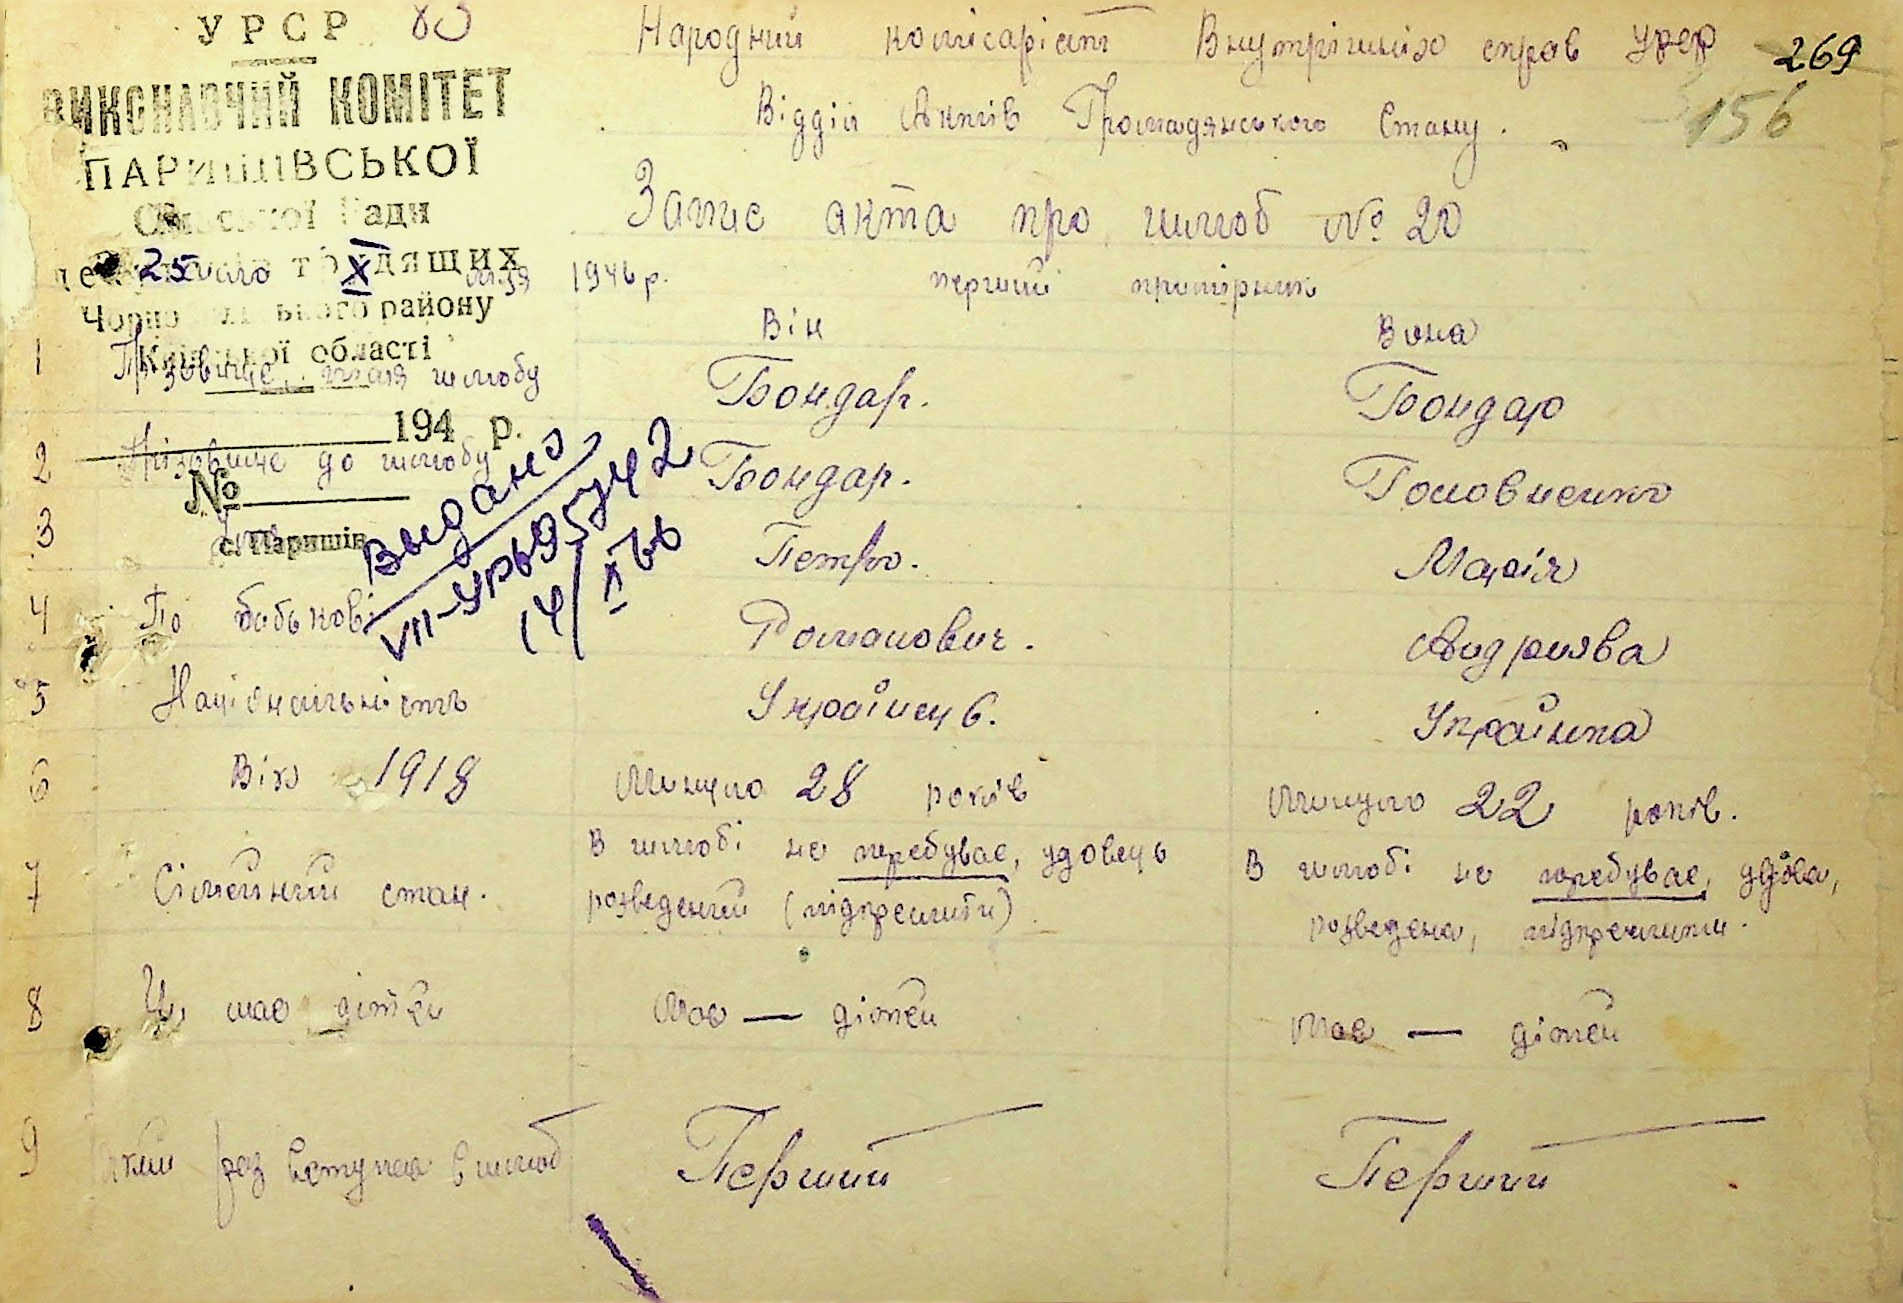 УРСР 83
ВИКОНАВЧИЙ КОМІТЕТ
ПАРИШІВСЬКОЇ
Сільської Ради
трудящих
Чорнобильського району
Київської області
194 р.
№
с. Паришів
Народний комісаріат Внутрішніх справ УРСР 269
Відділ Актів Громадянського Стану. 156
Запис акта про шлюб № 20
25 X м-ця 1946 р. перший примірник
Він Вона
1 Прізвище після шлюбу Бондар. Бондар
2 Прізвище до шлюбу Бондар. Головненко
3 Петро. Марія
Выдано
VII-УРЬ957442
14/X 66
4 По батькові Романович. Андріява
5 Національність Українець. Українка
6 Вік 1918 Минуло 28 років Минуло 22 років.
7 Сімейний стан. В шлюбі не перебуває, удовець В шлюбі не перебуває, удова,
розведений (підкреслити) розведена, підкреслити.
8 Чи має дітей Має — дітей Має — дітей
9 який раз вступає в шлюб Перший Перший